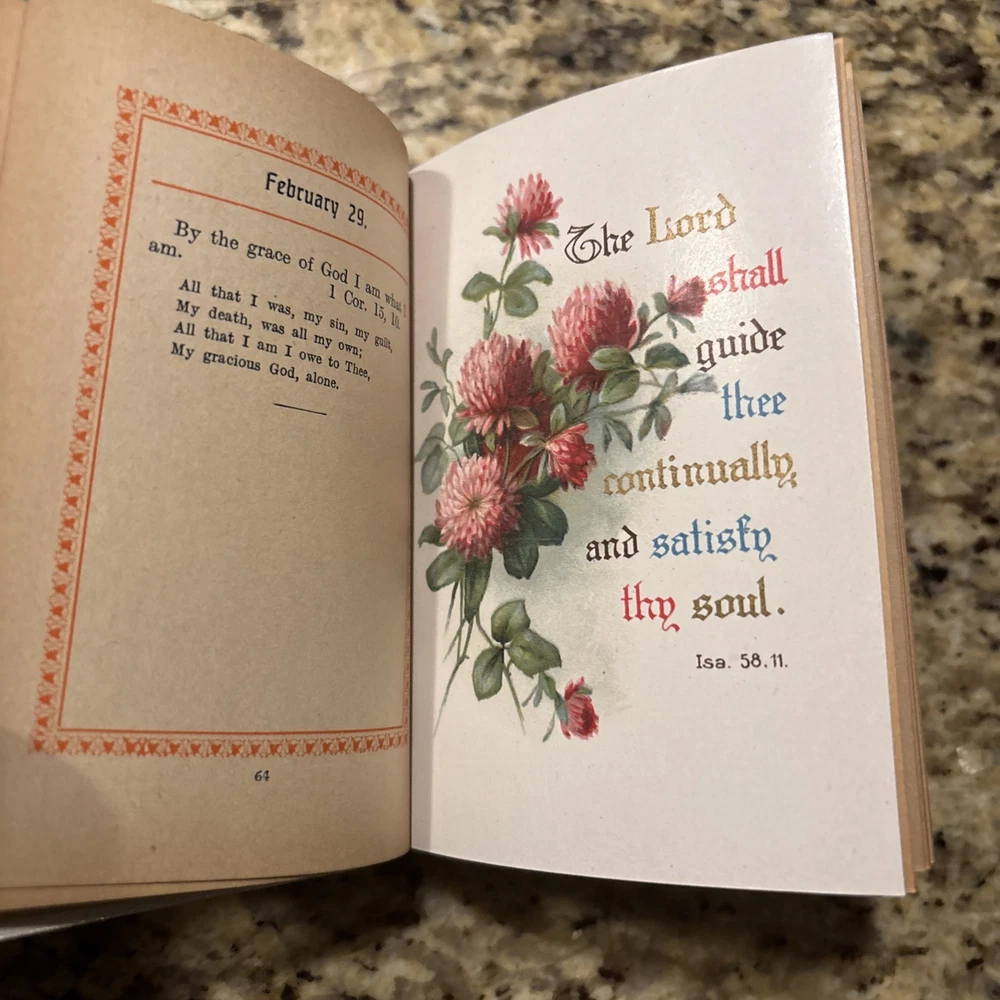 February 29.
By the grace of God I am what I
am.
1 Cor. 15, 10.
All that I was, my sin, my guilt,
My death, was all my own;
All that I am I owe to Thee,
My gracious God, alone.
64
The Lord
shall
guide
thee
continually,
and satisfy
thy soul.
Isa. 58.11.